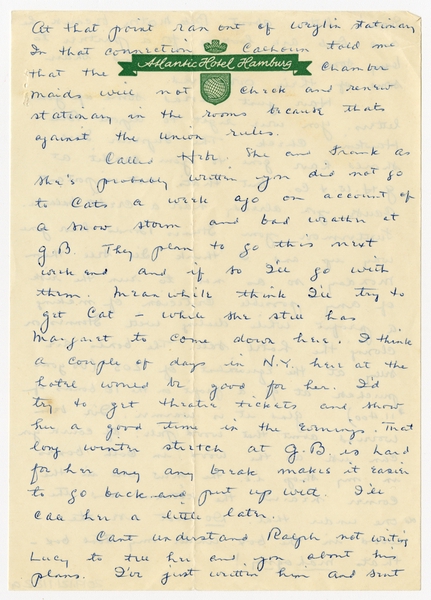 At that point ran out of Weylin stationary
In that connection Calhoun told me
Atlantic Hotel Hamburg
that the Chamber
maids will not check and renew
stationary in the rooms because thats
against the union rules.
Called Hebe. She and Frank as
she's probably written you did not go
to Cats a week ago on account of
a snow storm and bad weather at
G.B. They plan to go this next
week end and if so I'll go with
them. Meanwhile think I'll try to
get Cat - while she still has
Margaret to come down here. I think
a couple of days in N.Y. here at the
hotel would be good for her. I'd
try to get theatre tickets and show
her a good time in the evenings. That
long winter stretch at G.B. is hard
for her any any break makes it easier
to go back and put up with. I'll
call her a little later.
Cant understand Ralph not writing
Lucy to tell her and you about his
plans. I've just written him and sent